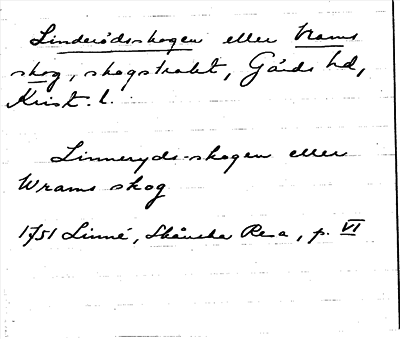 Linderödsskogen eller Vrams
skog, skogstrakt, Gärds hd,
Krist. l.
Linneryds-skogen eller
Wrams skog
1751 Linné, Skånska Resa, p. VI